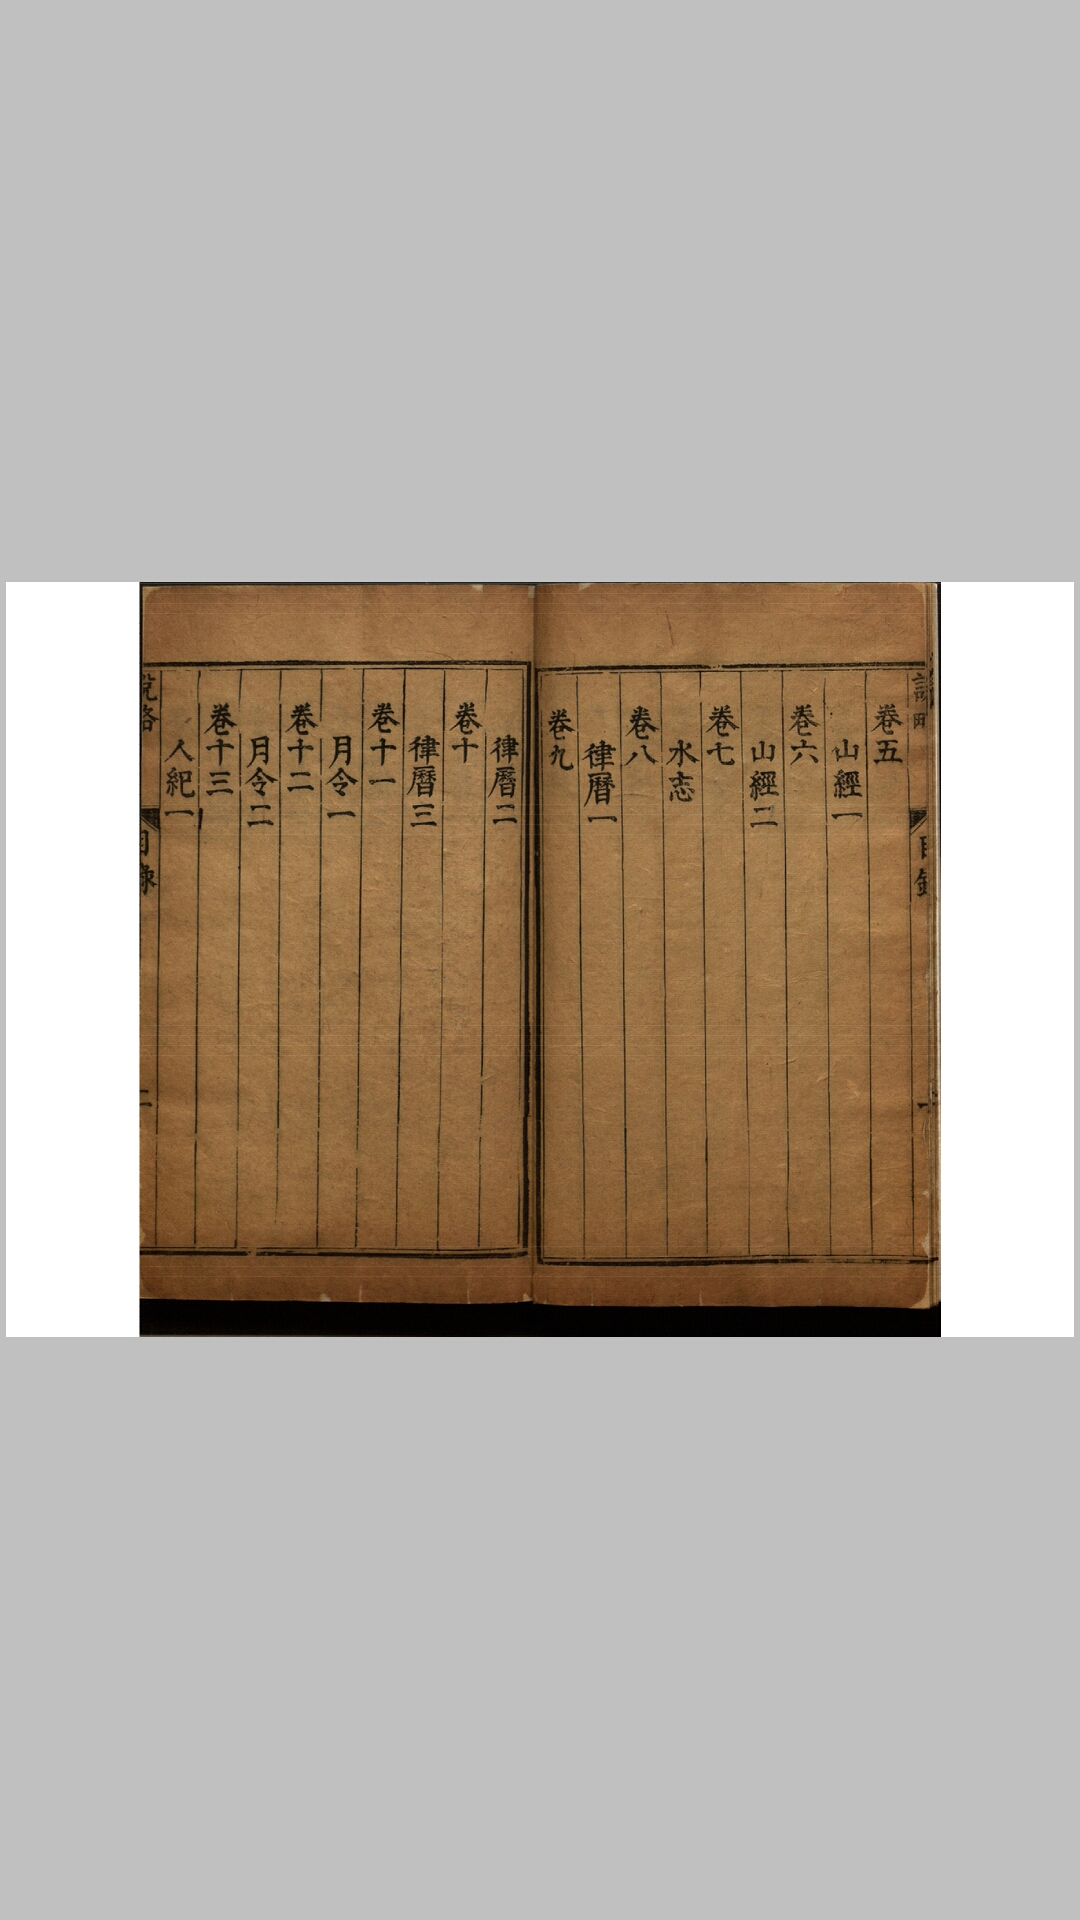 卷五
山經一
卷六
山經二
卷七
水志
卷八
律曆一
卷九
律曆二
卷十
律曆三
卷十一
月令一
卷十二
月令二
卷十三
人紀一
說略
目錄
二